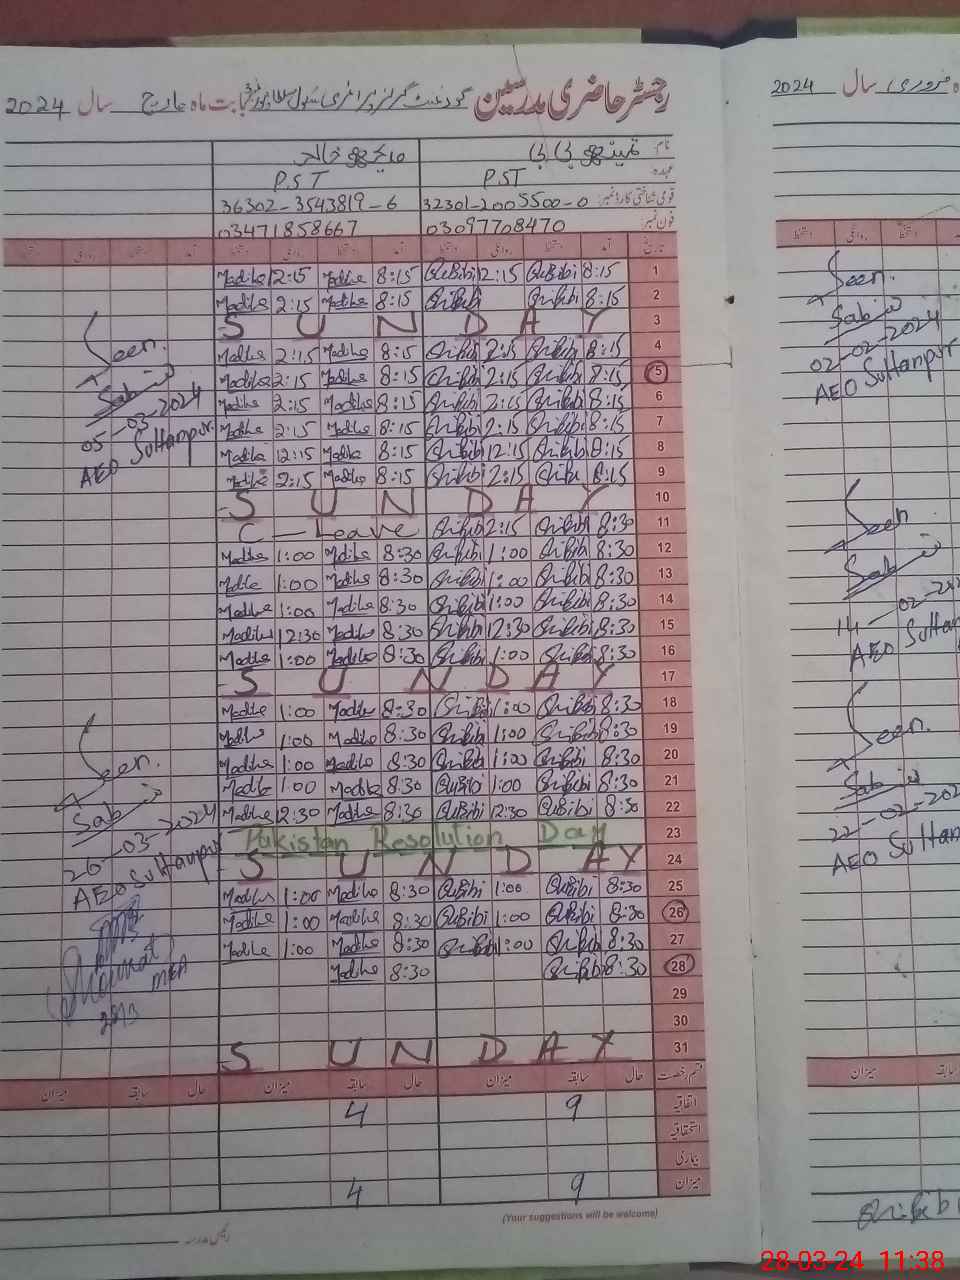 رجسٹر حاضری مدرسین گورنمنٹ گرلز پرائمری سکول بابت ماہ مارچ سال 2024
نام:
عہدہ: PST PST
قومی شناختی کارڈ نمبر: 32301-2005500-0 36302-3543819-6
فون نمبر: 03097708470 03471858667
تاریخ آمد دستخط روانگی دستخط آمد دستخط روانگی دستخط
Madiha 12:15 Madiha 8:15 QuBibi 12:15 QuBibi 8:15 1
Madiha 2:15 Madiha 8:15 QuBibi QuBibi 8:15 2
S U N D A Y 3
Madiha 2:15 Madiha 8:15 QuBibi 2:15 QuBibi 8:15 4
Madiha 2:15 Madiha 8:15 QuBibi 2:15 QuBibi 8:15 5
Madiha 2:15 Madiha 8:15 QuBibi 2:15 QuBibi 8:15 6
Madiha 2:15 Madiha 8:15 QuBibi 2:15 QuBibi 8:15 7
Madiha 12:15 Madiha 8:15 QuBibi 12:15 QuBibi 8:15 8
Madiha 2:15 Madiha 8:15 QuBibi 2:15 QuBibi 8:15 9
S U N D A Y 10
C - Leave QuBibi 2:15 QuBibi 8:30 11
Madiha 1:00 Madiha 8:30 QuBibi 1:00 QuBibi 8:30 12
Madiha 1:00 Madiha 8:30 QuBibi 1:00 QuBibi 8:30 13
Madiha 1:00 Madiha 8:30 QuBibi 1:00 QuBibi 8:30 14
Madiha 12:30 Madiha 8:30 QuBibi 12:30 QuBibi 8:30 15
Madiha 1:00 Madiha 8:30 QuBibi 1:00 QuBibi 8:30 16
S U N D A Y 17
Madiha 1:00 Madiha 8:30 QuBibi 1:00 QuBibi 8:30 18
Madiha 1:00 Madiha 8:30 QuBibi 1:00 QuBibi 8:30 19
Madiha 1:00 Madiha 8:30 QuBibi 1:00 QuBibi 8:30 20
Madiha 1:00 Madiha 8:30 QuBibi 1:00 QuBibi 8:30 21
Madiha 12:30 Madiha 8:30 QuBibi 12:30 QuBibi 8:30 22
Pakistan Resolution Day 23
S U N D A Y 24
Madiha 1:00 Madiha 8:30 QuBibi 1:00 QuBibi 8:30 25
Madiha 1:00 Madiha 8:30 QuBibi 1:00 QuBibi 8:30 26
Madiha 1:00 Madiha 8:30 QuBibi 1:00 QuBibi 8:30 27
Madiha 8:30 QuBibi 8:30 28
29
30
S U N D A Y 31
قسم رخصت حال سابقہ میزان حال سابقہ میزان حال سابقہ میزان
اتفاقیہ 9 4
استحقاقیہ
بیماری
میزان 9 4
(Your suggestions will be welcome)
رئیس مدرسہ
Seen.
05-03-2024
AEO Sultanpur.
Seen.
26-03-2024
AEO Sultanpur
MEA
فروری سال 2024
دستخط روانگی دستخط
Seen.
02-02-2024
AEO Sultanpur
Seen
14-02-202
AEO Sultan
Seen.
22-02-202
AEO Sultan
میزان سابقہ
QuBibi
28-03-24 11:38